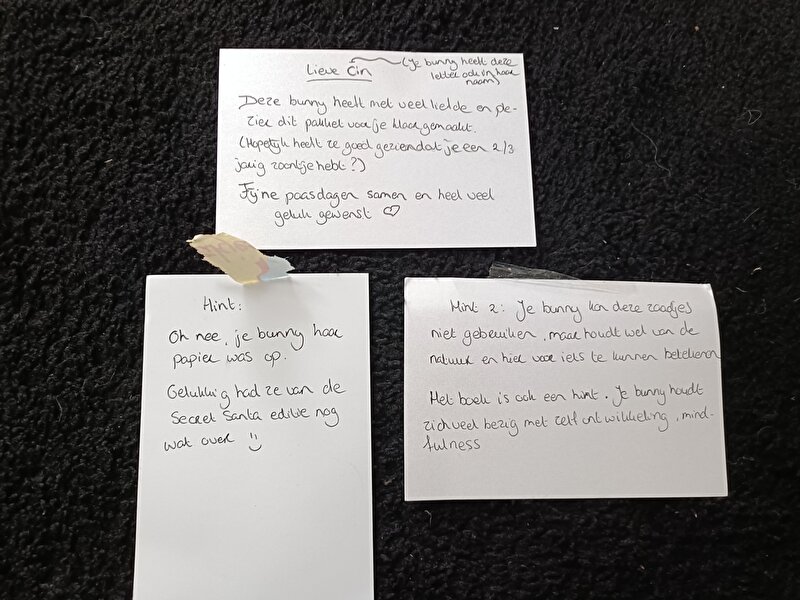 Lieve Cin
(Je bunny heeft deze
letter ook in haar
naam)
Deze bunny heeft met veel liefde en ple-
zier dit pakket voor je klaar gemaakt.
(Hopelijk heeft ze goed gezien dat je een 2/3
jarig zoontje hebt?)
Fijne paasdagen samen en heel veel
geluk gewenst ♡
Hint:
Oh nee, je bunny haar
papier was op.
Gelukkig had ze van de
Secret Santa editie nog
wat over :)
Hint 2: Je bunny kon deze zaadjes
niet gebruiken, maar houdt wel van de
natuur en hier voor iets te kunnen betekenen
Het boek is ook een hint. Je bunny houdt
zich veel bezig met zelf ontwikkeling, mind-
fulness